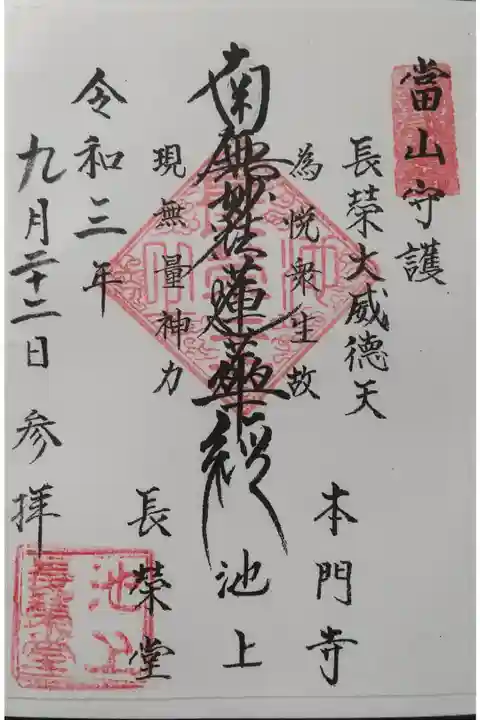 當山守護
長榮大威德天
為悦衆生故
南無妙法蓮華経
現無量神力
池上
本門寺
長榮堂
令和三年
九月二十二日
参拝